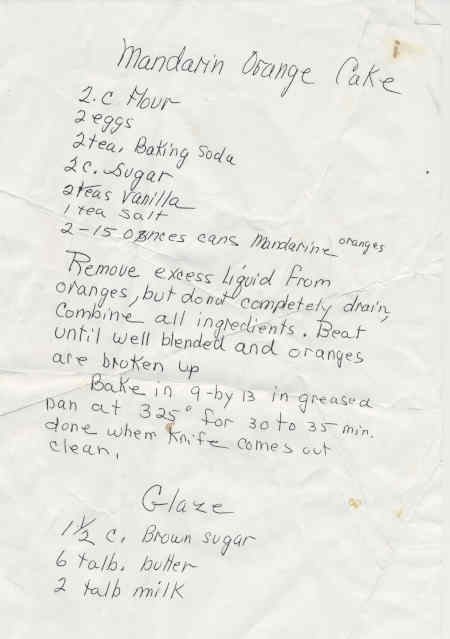 Mandarin Orange Cake
2. c Flour
2 eggs
2 tea. Baking Soda
2 c. Sugar
2 teas Vanilla
1 tea salt
2 - 15 ounces cans Mandarine oranges
Remove excess liquid from
oranges, but do not completely drain,
Combine all ingredients. Beat
until well blended and oranges
are broken up
Bake in 9-by 13 in greased
pan at 325° for 30 to 35 min.
done when knife comes out
clean.
Glaze
1 1/2 c. Brown sugar
6 talb. butter
2 talb milk